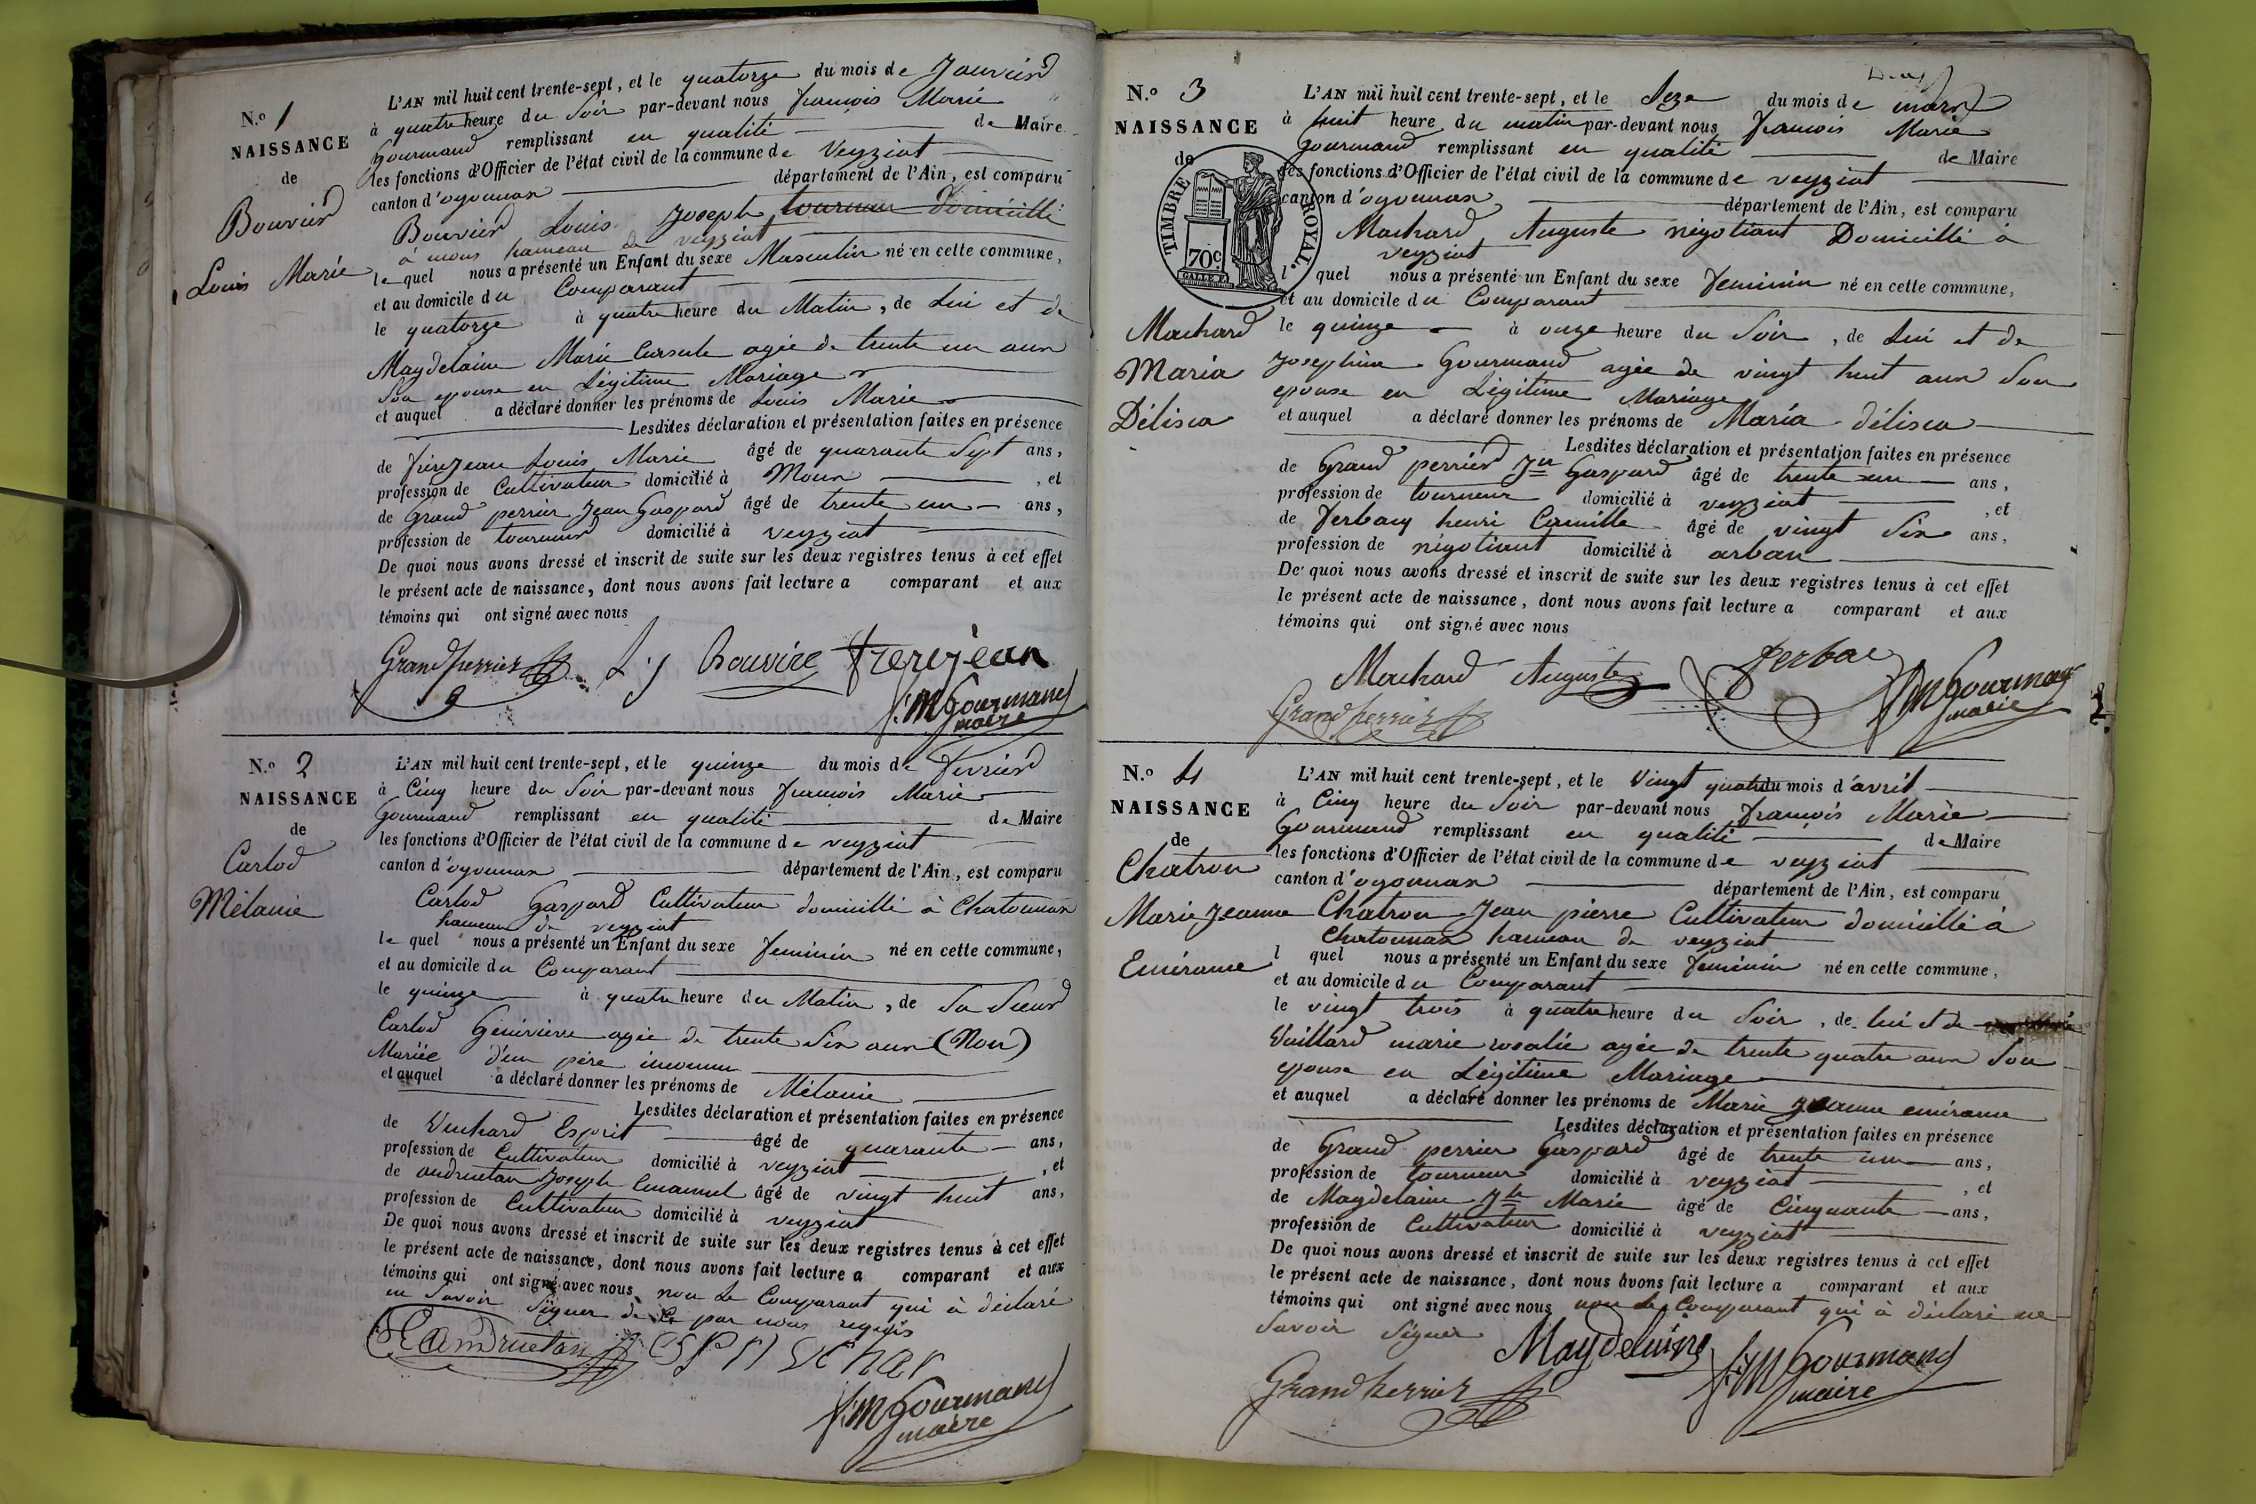 N.º 1
NAISSANCE
de
Bouvier
Louis Marie
L'AN mil huit cent trente-sept, et le quatorze du mois de Janvier
à quatre heure du Soir par-devant nous françois Marie
Gourmand remplissant en qualité de Maire
les fonctions d'Officier de l'état civil de la commune de Veyziat
canton d'oyonnax département de l'Ain, est comparu
Bouvier Louis Joseph tourneur domicillié
à mons hameau de veyziat
le quel nous a présenté un Enfant du sexe Masculin né en cette commune,
et au domicile du Comparant
le quatorze à quatre heure du Matin, de Lui et de
Magdelaine Marie Cursule agée de trente un ans
Son epouse en Légitime Mariage
et auquel a déclaré donner les prénoms de Louis Marie
Lesdites déclaration et présentation faites en présence
de frèrejean Louis Marie âgé de quarante Sept ans,
profession de Cultivateur domicilié à Mons, et
de Grand perrier Jean Gaspard âgé de trente un ans,
profession de tourneur domicilié à veyziat
De quoi nous avons dressé et inscrit de suite sur les deux registres tenus à cet effet
le présent acte de naissance, dont nous avons fait lecture a comparant et aux
témoins qui ont signé avec nous
Grandperrier L. j Bouvier frerejean
f. M Gourmand
maire
N.º 2
NAISSANCE
de
Carlod
Mélanie
L'AN mil huit cent trente-sept, et le quinze du mois de fevrier
à Cinq heure du Soir par-devant nous françois Marie
Gourmand remplissant en qualité de Maire
les fonctions d'Officier de l'état civil de la commune de veyziat
canton d'oyonnax département de l'Ain, est comparu
Carlod Gaspard Cultivateur domicillié à Chatonnax
hameau de veyziat
le quel nous a présenté un Enfant du sexe feminin né en cette commune,
et au domicile du Comparant
le quinze à quatre heure du Matin, de Sa Sœur
Carlod Génévieve agée de trente Six ans (Non)
Mariée d'un père inconnu
et auquel a déclaré donner les prénoms de Mélanie
Lesdites déclaration et présentation faites en présence
de Vuchard Esprit âgé de quarante ans,
profession de Cultivateur domicilié à veyziat, et
de andruetan Joseph Emanuel âgé de vingt huit ans,
profession de Cultivateur domicilié à veyziat
De quoi nous avons dressé et inscrit de suite sur les deux registres tenus à cet effet
le présent acte de naissance, dont nous avons fait lecture a comparant et aux
témoins qui ont signé avec nous non Le Comparant qui à déclaré
ne Savoir Signer de Ce par nous requis
Andruetan
f. M Gourmand
maire
N.º 3
NAISSANCE
de
TIMBRE ROYAL.
70c
GALLE F.
Machard
Maria
Délisca
L'AN mil huit cent trente-sept, et le Seze du mois de mars
à huit heure du matin par-devant nous françois Marie
Gourmand remplissant en qualité de Maire
les fonctions d'Officier de l'état civil de la commune de veyziat
canton d'oyonnax département de l'Ain, est comparu
Machard Auguste négotiant Domicillié à
veyziat
l quel nous a présenté un Enfant du sexe feminin né en cette commune,
et au domicile du Comparant
le quinze à onze heure du Soir, de Lui et de
Josephine Gourmand agée de vingt huit ans Son
epouse en Légitime Mariage
et auquel a déclaré donner les prénoms de Maria délisca
Lesdites déclaration et présentation faites en présence
de Grand perrier Jn Gaspard âgé de trente un ans,
profession de tourneur domicilié à veyziat, et
de Jerbay henri Camille âgé de vingt Six ans,
profession de négotiant domicilié à arban
De quoi nous avons dressé et inscrit de suite sur les deux registres tenus à cet effet
le présent acte de naissance, dont nous avons fait lecture a comparant et aux
témoins qui ont signé avec nous
Machard Auguste
Grandperrier
f. M Gourmand
maire
N.º 4
NAISSANCE
de
Chatron
Marie Jeanne
Emérance
L'AN mil huit cent trente-sept, et le Vingt quatre du mois d'avril
à Cinq heure du Soir par-devant nous françois Marie
Gourmand remplissant en qualité de Maire
les fonctions d'Officier de l'état civil de la commune de veyziat
canton d'oyonnax département de l'Ain, est comparu
Chatron Jean pierre Cultivateur domicillié à
Chatonnax hameau de veyziat
l quel nous a présenté un Enfant du sexe feminin né en cette commune,
et au domicile du Comparant
le vingt trois à quatre heure du Soir, de lui et de
Vuillard marie rosalie agée de trente quatre ans Son
epouse en Légitime Mariage
et auquel a déclaré donner les prénoms de Marie Jeanne emérance
Lesdites déclaration et présentation faites en présence
de Grand perrier Gaspard âgé de trente un ans,
profession de tourneur domicilié à veyziat, et
de Magdelaine Jh Marie âgé de Cinquante ans,
profession de Cultivateur domicilié à veyziat
De quoi nous avons dressé et inscrit de suite sur les deux registres tenus à cet effet
le présent acte de naissance, dont nous avons fait lecture a comparant et aux
témoins qui ont signé avec nous non Le Comparant qui à déclaré ne
Savoir Signer
Magdelaine
Grandperrier
f. M Gourmand
maire